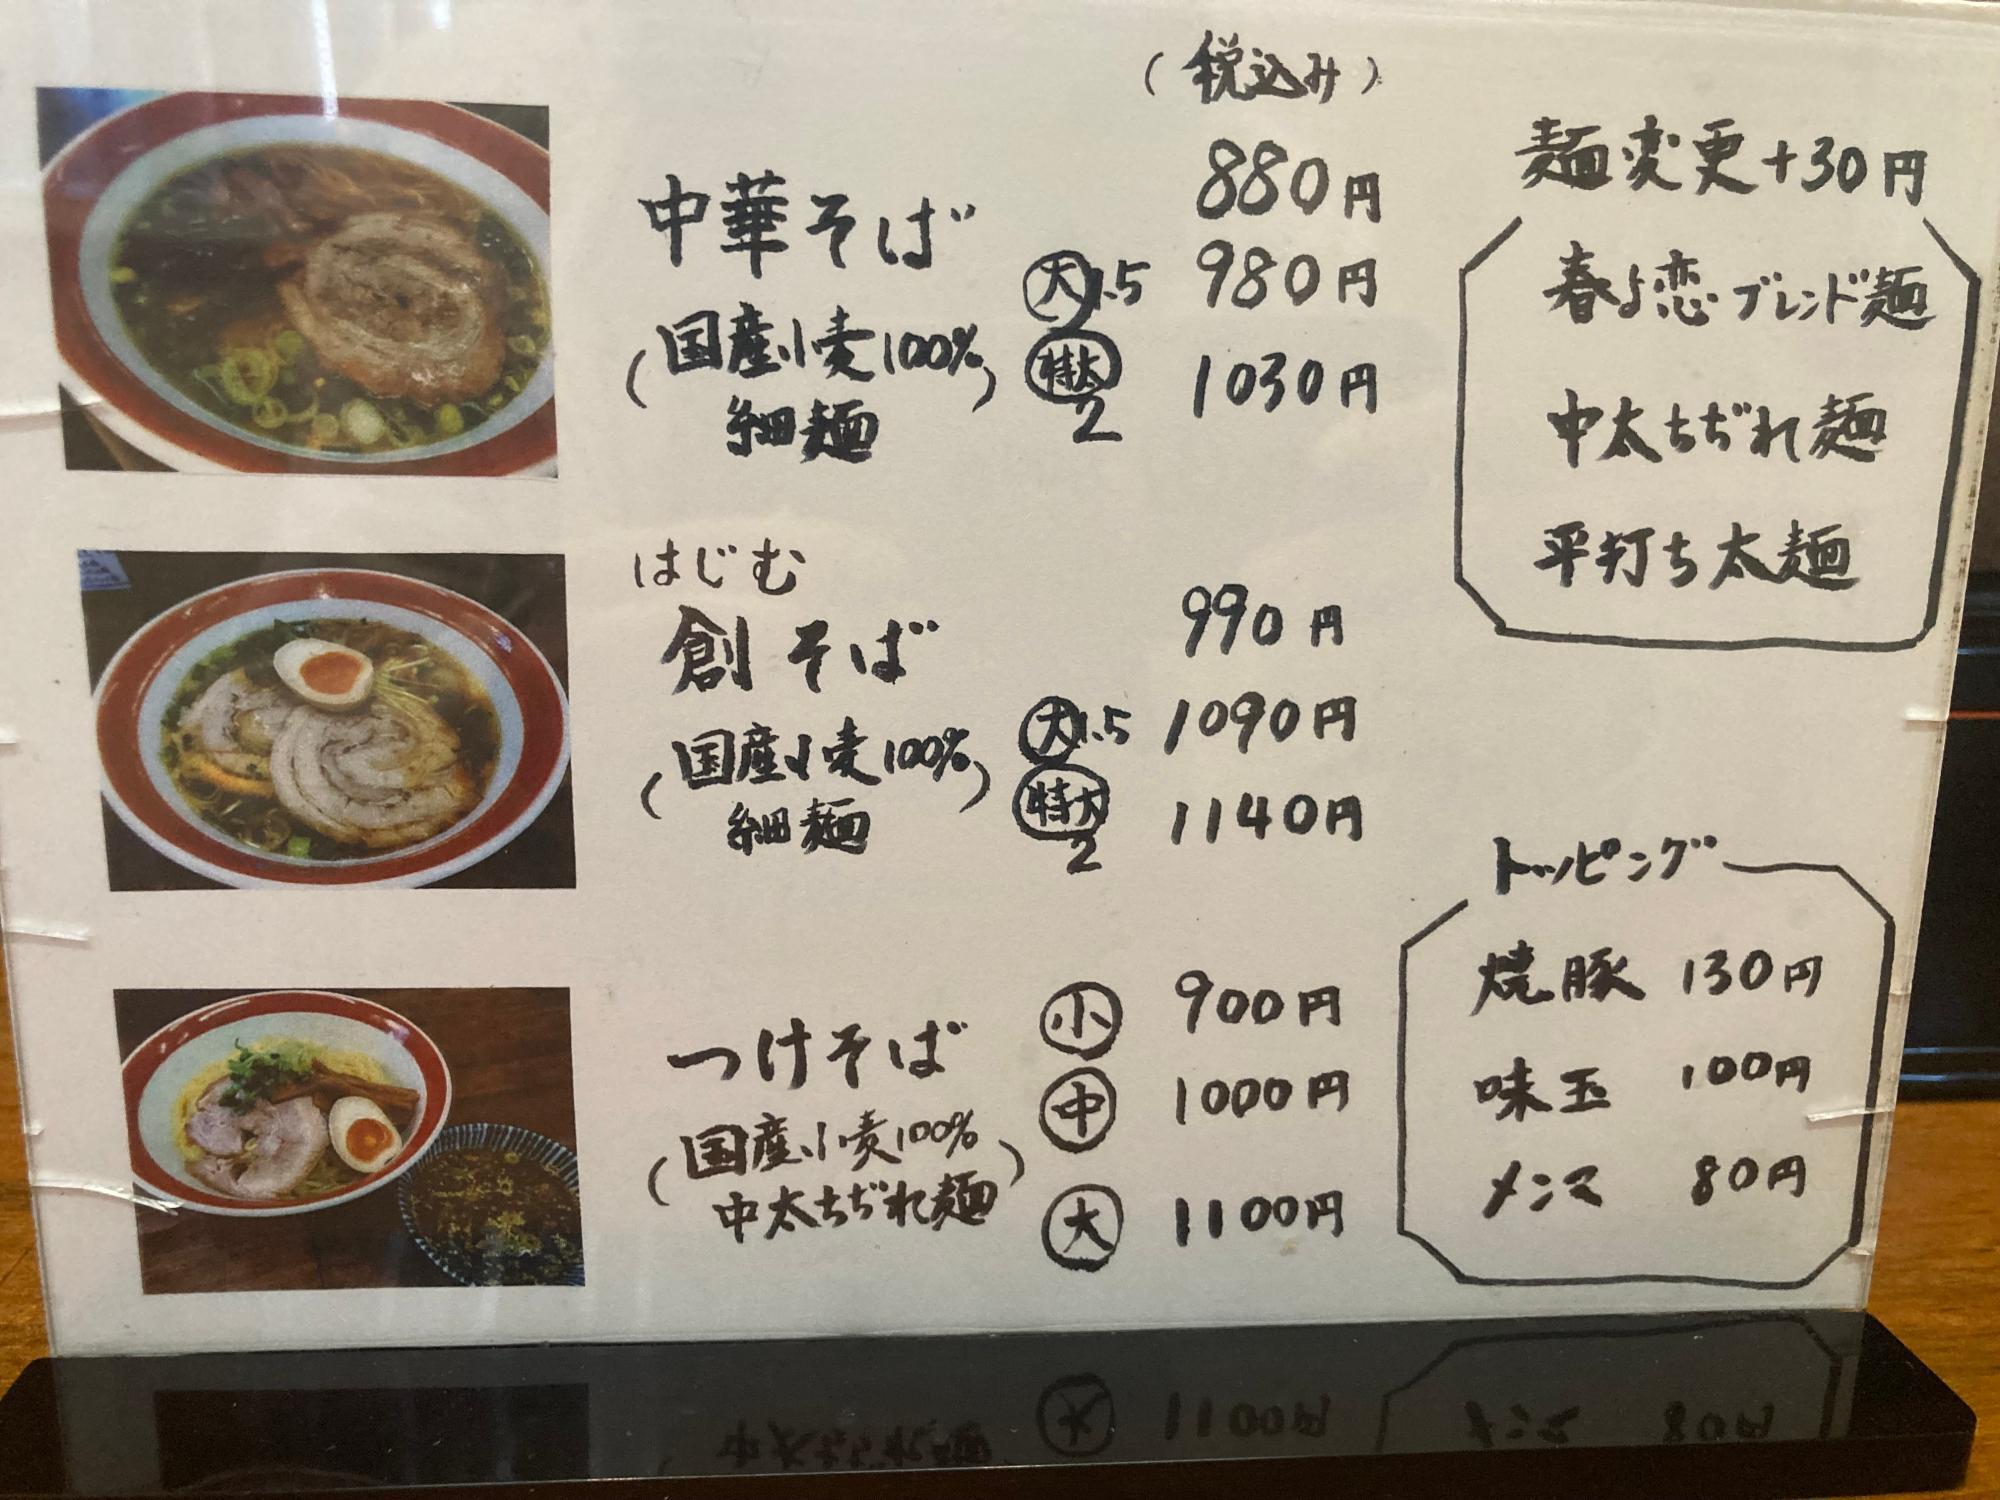 (税込み)
中華そば 880円
大 1.5 980円
(国産小麦100% 細麺)
特大 2 1030円
はじむ
創そば 990円
大 1.5 1090円
(国産小麦100% 細麺)
特大 2 1140円
つけそば
(国産小麦100% 中太ちぢれ麺)
小 900円
中 1000円
大 1100円
麺変更+30円
春よ恋ブレンド麺
中太ちぢれ麺
平打ち太麺
トッピング
焼豚 130円
味玉 100円
メンマ 80円